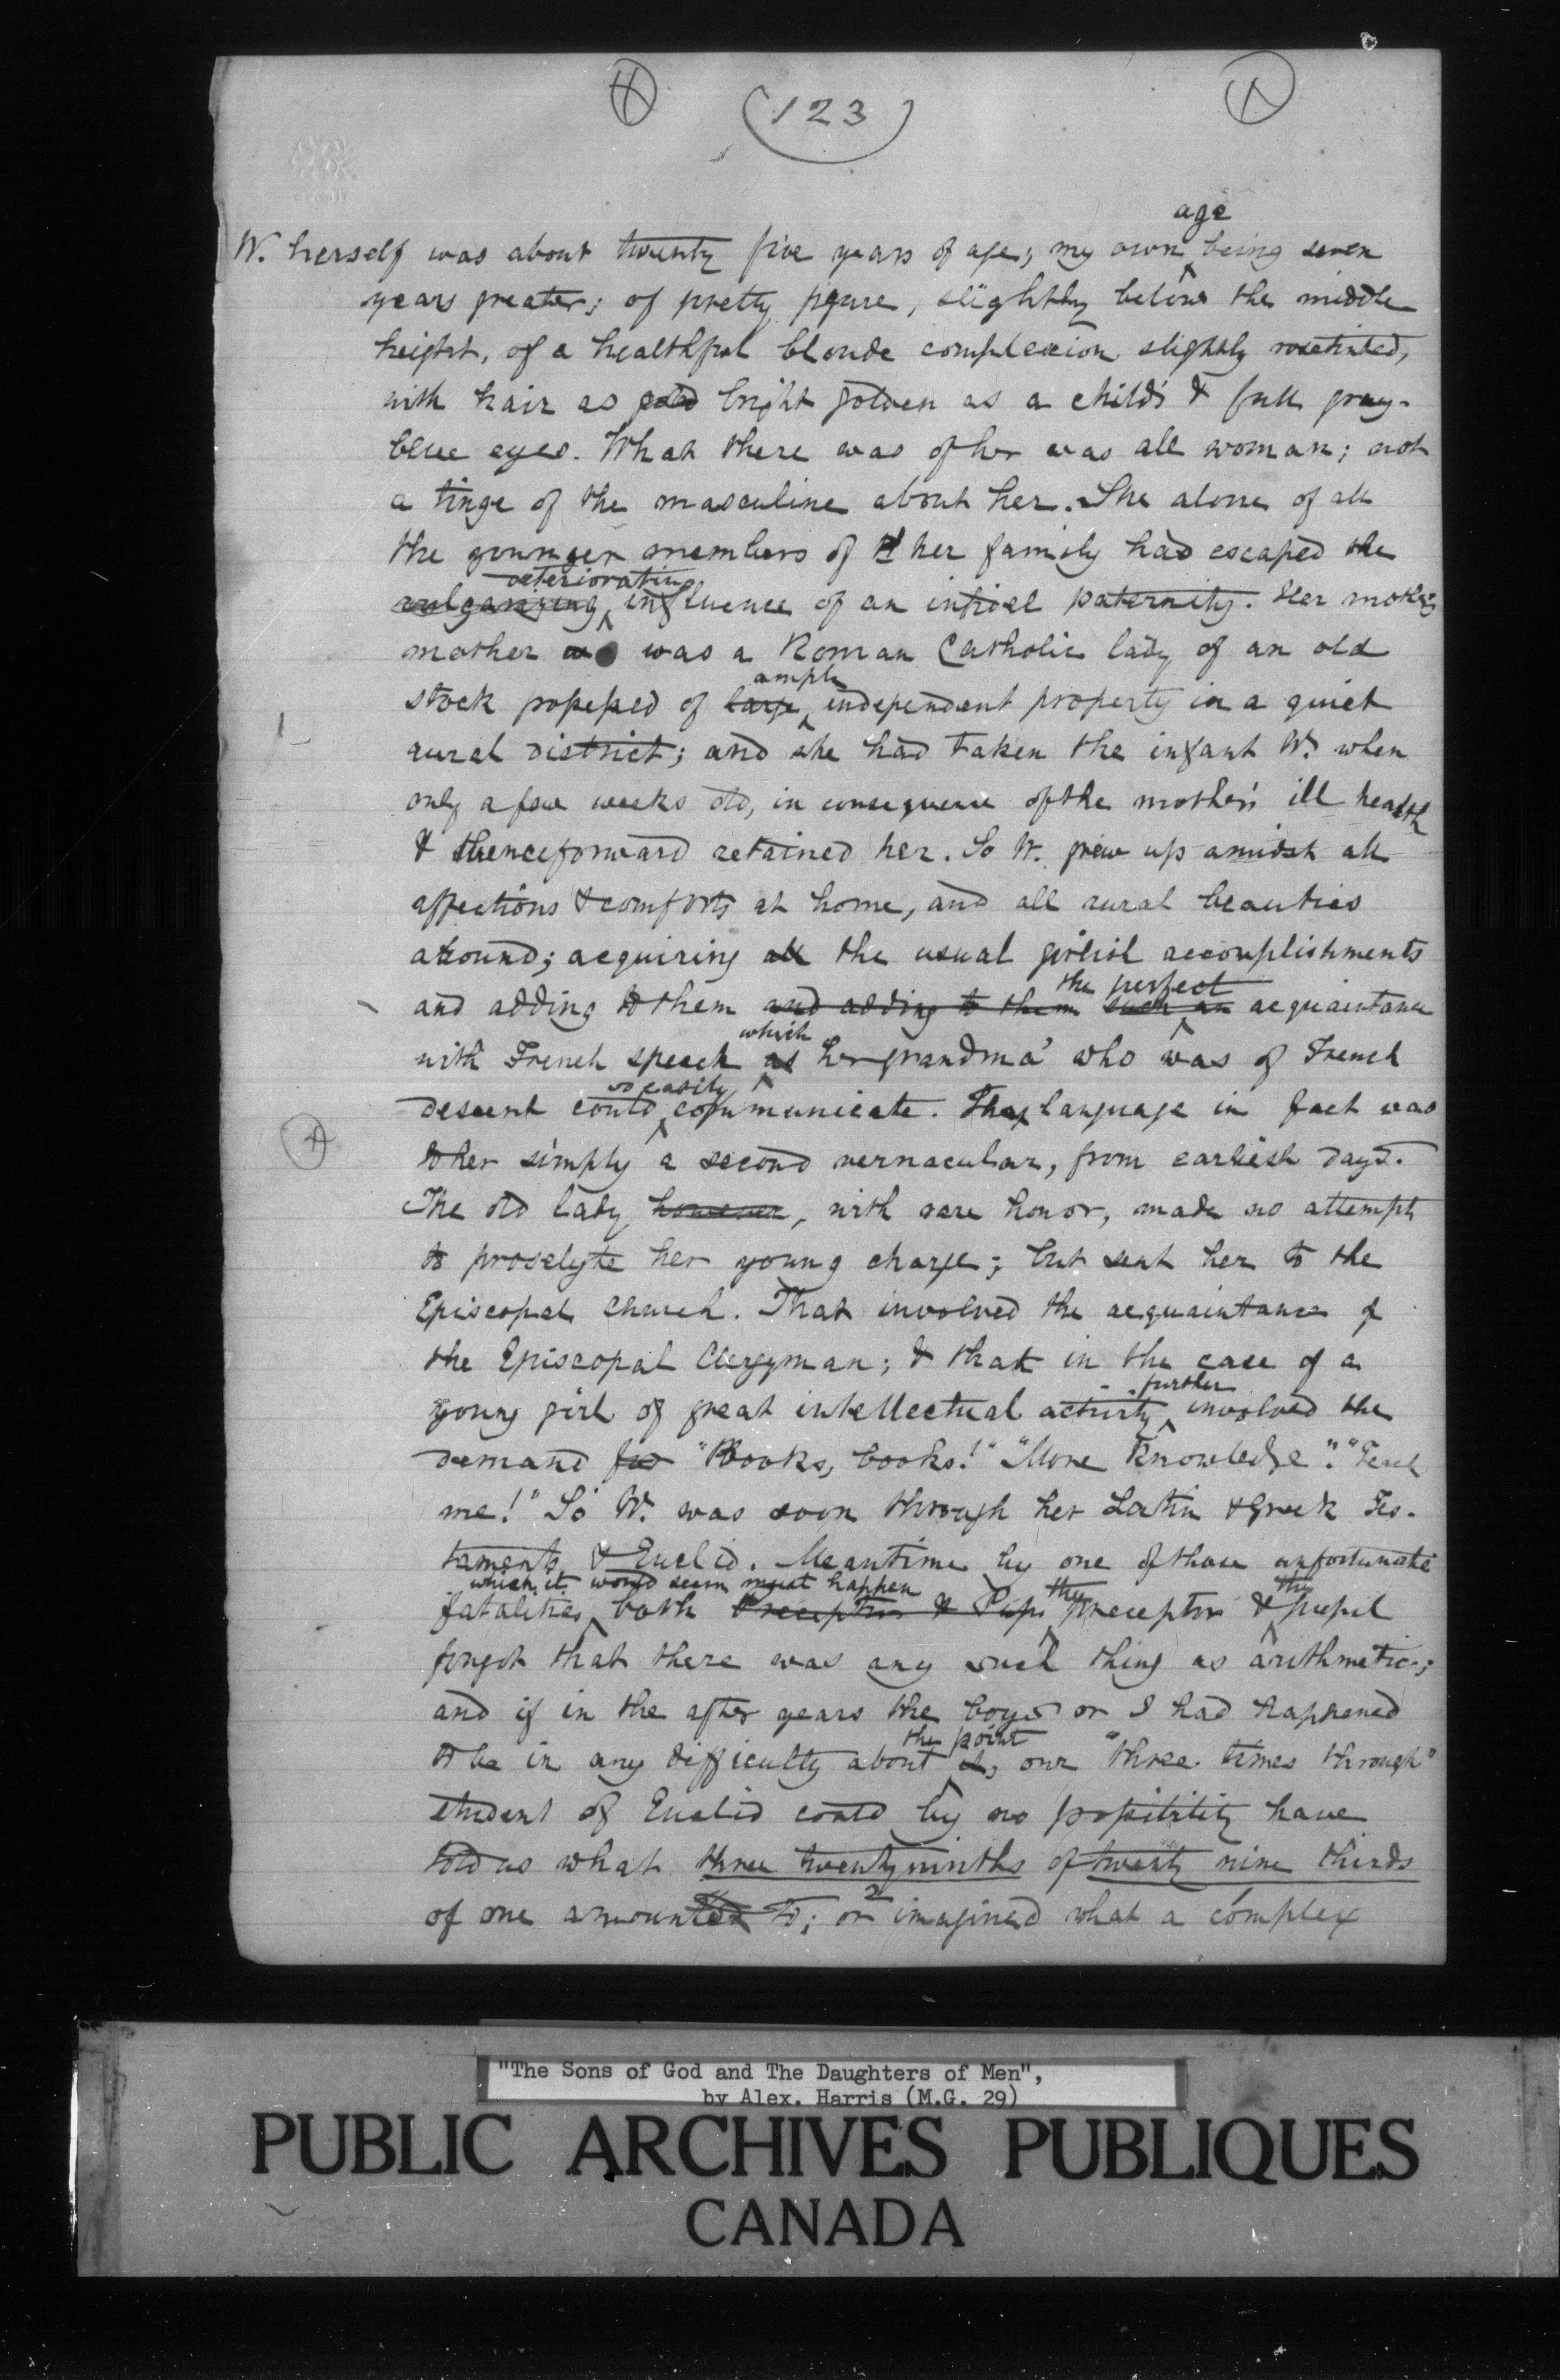 (123)
age
W. herself was about twenty five years of age; my own being seven
years greater; of pretty figure, slightly below the middle
height, of a healthful blonde complexion slightly rosetinted,
with hair as gold bright golden as a child's & full gray-
blue eyes. What there was of her was all woman; not
a tinge of the masculine about her. She alone of all
the younger members of her family had escaped the
deteriorating
vulgarizing influence of an infidel paternity. Her mother's
mother was a Roman Catholic lady of an old
ample
stock possessed of large independent property in a quiet
rural district; and she had taken the infant W. when
only a few weeks old, in consequence of the mother's ill health
& thenceforward retained her. So W. grew up amidst all
affections & comforts at home, and all rural beauties
around; acquiring all the usual girlish accomplishments
the perfect
and adding to them and adding to them such an acquaintance
which
with French speech as her grandma' who was of French
so easily
descent could communicate. The language in fact was
to her simply a second vernacular, from earliest days.
The old lady however, with rare honor, made no attempt
to proselyte her young charge; but sent her to the
Episcopal Church. That involved the acquaintance of
the Episcopal Clergyman; & that in the case of a
further
young girl of great intellectual activity involved the
demand for "Books, books!" "More Knowledge". "Teach
me!" So W. was soon through her Latin & Greek Tes-
taments & Euclid. Meantime by one of those unfortunate
which it would seem must happen the the
fatalities both Preceptor & Pupi preceptor & pupil
forgot that there was any such thing as arithmetic;
and if in the after years the boys or I had happened
the point
to be in any difficulty about it, our "three times through"
student of Euclid could by no possibility have
told us what three twentyninths of twenty nine thirds
of one amounted to; or imagined what a complex
"The Sons of God and The Daughters of Men",
by Alex. Harris (M.G. 29)
PUBLIC ARCHIVES PUBLIQUES
CANADA